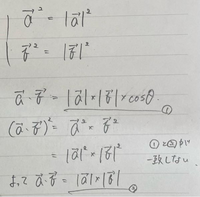 a⃗² = |a⃗|²
b⃗² = |b⃗|²
a⃗・b⃗ = |a⃗|×|b⃗|×cosθ ①
(a⃗・b⃗)² = a⃗² × b⃗²
= |a⃗|²×|b⃗|²
①と②が
一致しない
よって a⃗・b⃗ = |a⃗|×|b⃗| ②